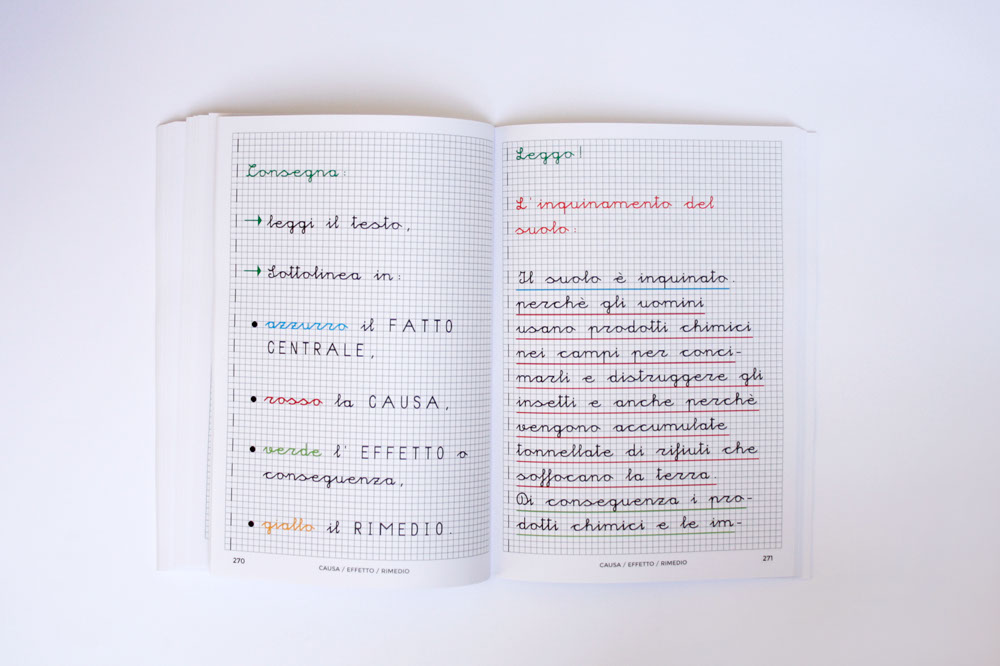 Consegna:
→ leggi il testo,
→ Sottolinea in:
• azzurro il FATTO
CENTRALE,
• rosso la CAUSA,
• verde l' EFFETTO o
conseguenza,
• giallo il RIMEDIO.
270
CAUSA / EFFETTO / RIMEDIO
Leggo!
L'inquinamento del
suolo:
Il suolo è inquinato.
perchè gli uomini
usano prodotti chimici
nei campi per conci-
marli e distruggere gli
insetti e anche perchè
vengono accumulate
tonnellate di rifiuti che
soffocano la terra.
Di conseguenza i pro-
dotti chimici e le im-
CAUSA / EFFETTO / RIMEDIO
271